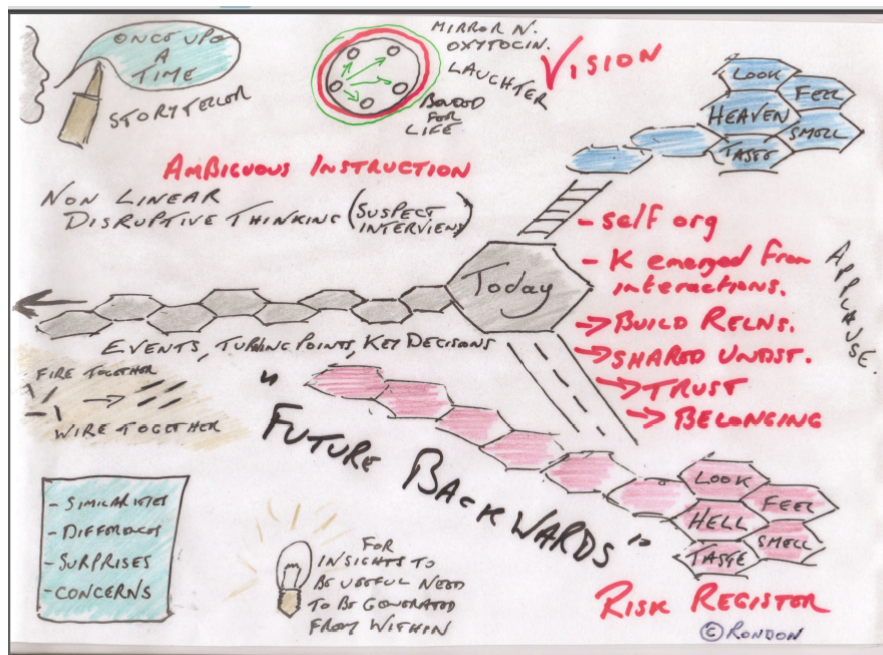 ONCE UPON
A
TIME
STORYTELLOR
MIRROR N.
OXYTOCIN.
LAUGHTER
BONDED
FOR
LIFE
VISION
LOOK
FEEL
HEAVEN
SMELL
TASTE
AMBIGUOUS INSTRUCTION
NON LINEAR
DISRUPTIVE THINKING (SUSPECT
INTERVIEWS)
Today
- self org
- K emerged from
interactions.
→ BUILD RELNS.
→ SHARED UNDST.
→ TRUST
→ BELONGING
APPLAUSE.
EVENTS, TURNING POINTS, KEY DECISIONS
FIRE TOGETHER
WIRE TOGETHER
"FUTURE BACKWARDS"
LOOK
FEEL
HELL
SMELL
TASTE
- SIMILARITIES
- DIFFERENCES
- SURPRISES
- CONCERNS
FOR
INSIGHTS TO
BE USEFUL NEED
TO BE GENERATED
FROM WITHIN
RISK REGISTER
© RONDON